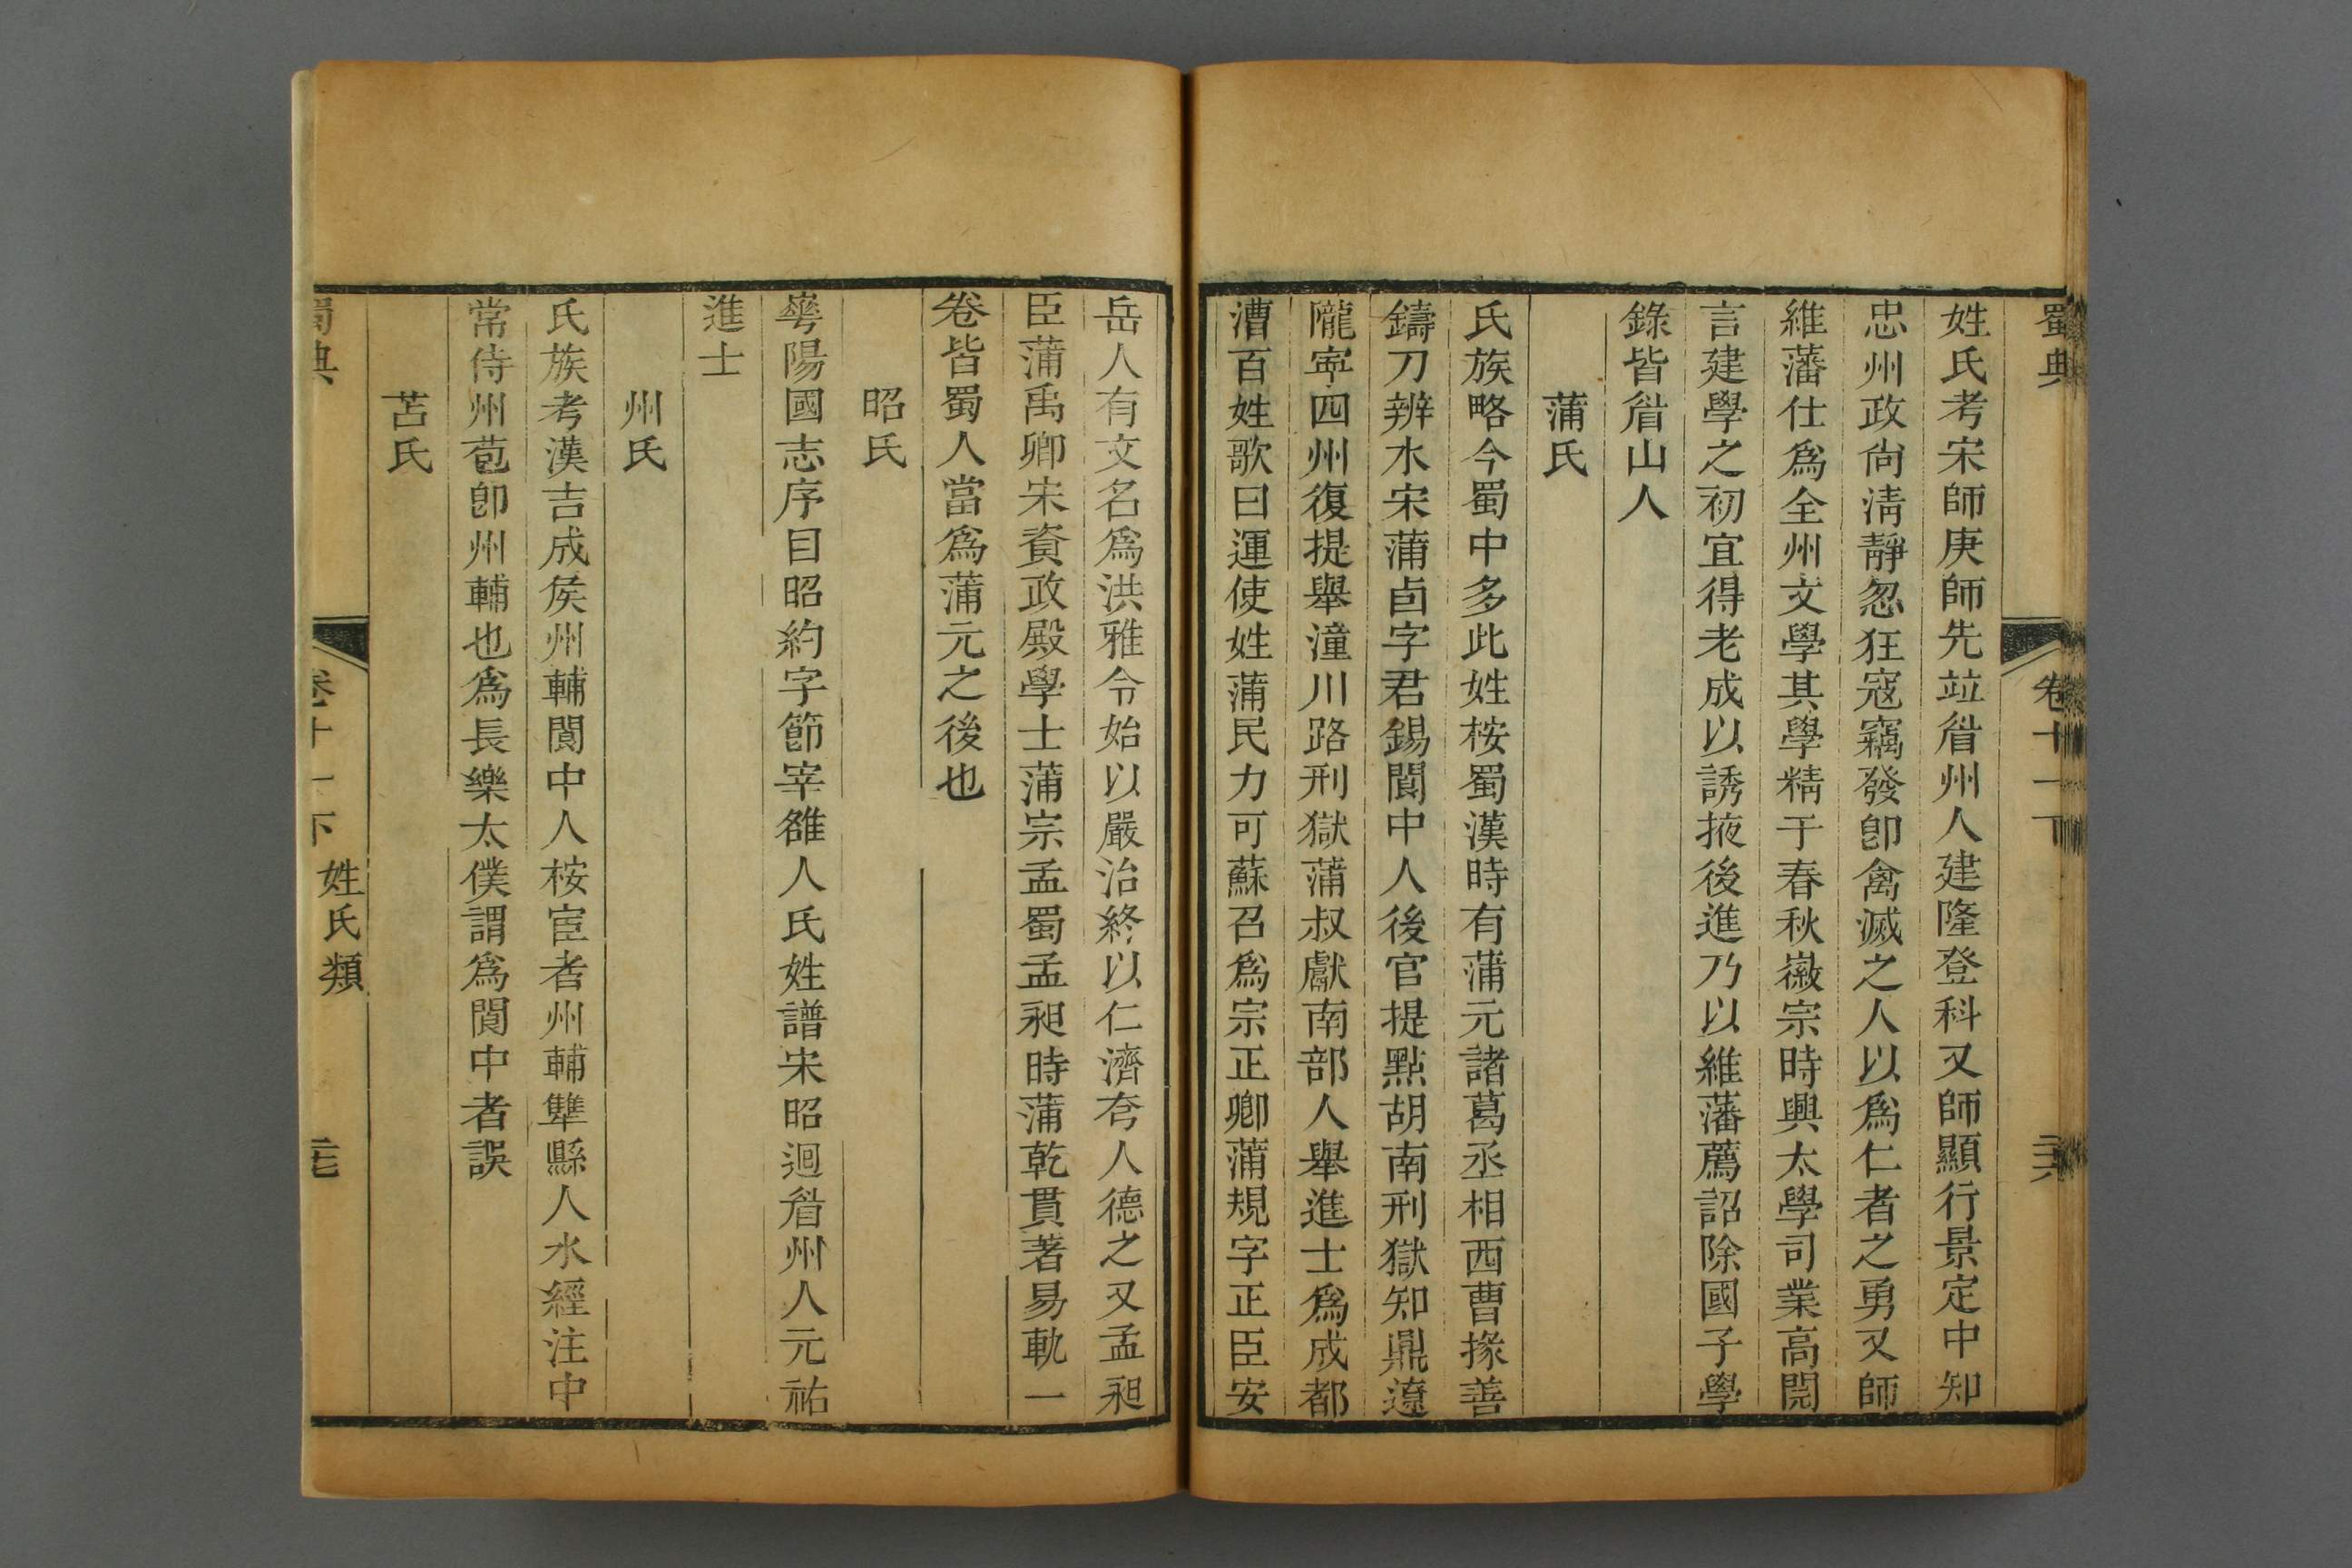 蜀典 卷十一下 三六
姓氏考宋師庚師先竝眉州人建隆登科又師顯行景定中知
忠州政尙淸靜忽狂寇竊發卽禽滅之人以爲仁者之勇又師
維藩仕爲全州文學其學精于春秋徽宗時興太學司業高閌
言建學之初宜得老成以誘掖後進乃以維藩薦詔除國子學
錄皆眉山人
蒲氏
氏族略今蜀中多此姓桉蜀漢時有蒲元諸葛丞相西曹掾善
鑄刀辨水宋蒲卣字君錫閬中人後官提點胡南刑獄知鼎遼
隴寧四州復提舉潼川路刑獄蒲叔獻南部人舉進士爲成都
漕百姓歌曰運使姓蒲民力可蘇召爲宗正卿蒲規字正臣安
岳人有文名爲洪雅令始以嚴治終以仁濟夸人德之又孟昶
臣蒲禹卿宋資政殿學士蒲宗孟蜀孟昶時蒲乾貫著易軌一
卷皆蜀人當爲蒲元之後也
昭氏
華陽國志序目昭約字節宰雒人氏姓譜宋昭迥眉州人元祐
進士
州氏
氏族考漢吉成侯州輔閬中人桉宦者州輔犨縣人水經注中
常侍州苞卽州輔也爲長樂太僕謂爲閬中者誤
苫氏
蜀典 卷十一下 姓氏類 三七